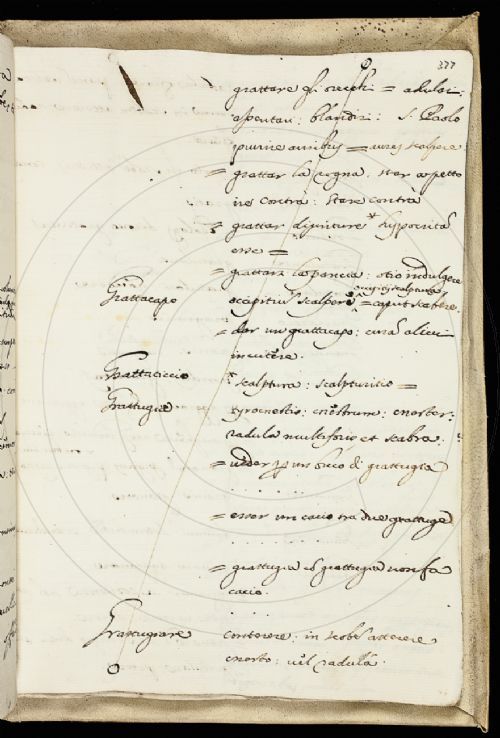 377
grattare gl. orecchi = adular:
: blandiri: S. Paolo
prurire auribus = aures scalpere
= grattar la rogna: star a petto
ire contra: stare contrà
= grattar dipinture * hyppocrità
esse =
= grattarsi la pancia: otio indulgere
Grattacapo occipitiũ scalpere = caput scabere.
= dar un grattacapo: curã alicui
incutere.
Grattaticcio scalptura: scalpturitio =
Grattugia tyrocnestio: cnestrum: cnester:
radula multiforio et scabra.
= veder p un buco di grattugia
. . . . . .
= esser un cacio tra due grattuge
. . . . . . .
= grattugia cõ grattugia non fa
cacio.
. . .
Grattugiare conterere: in scobe atterere
: vel radula.